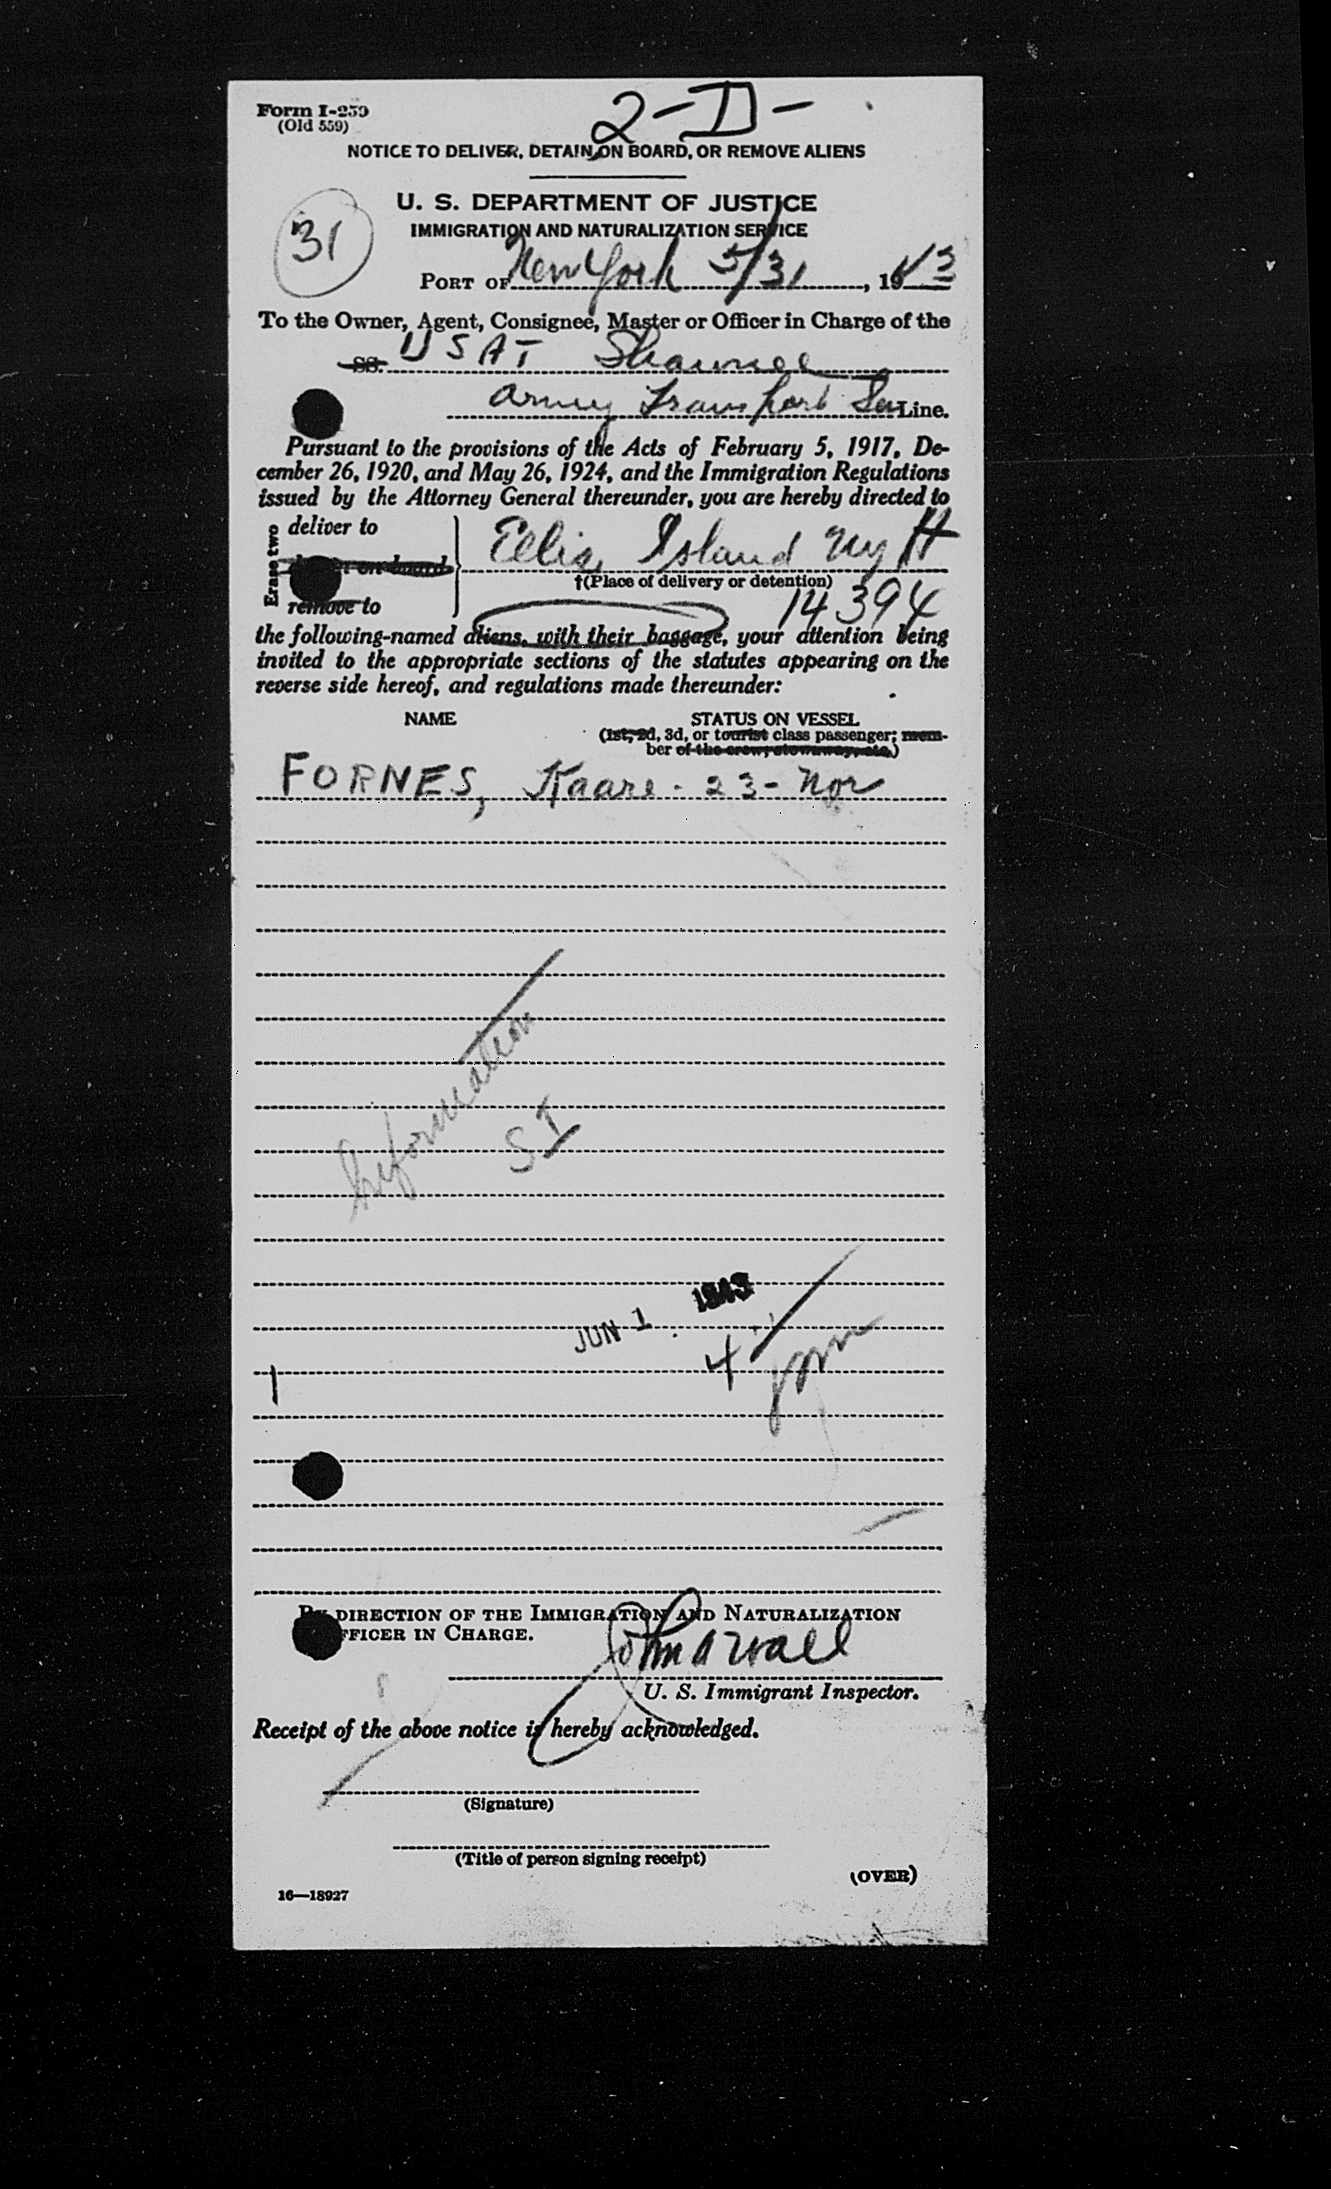 Form I-259
(Old 559)
2-D-
NOTICE TO DELIVER, DETAIN ON BOARD, OR REMOVE ALIENS
U. S. DEPARTMENT OF JUSTICE
IMMIGRATION AND NATURALIZATION SERVICE
31
PORT OF New York 5/31, 1943
To the Owner, Agent, Consignee, Master or Officer in Charge of the
SS. USAT Shawnee
Army Transport Ser Line.
Pursuant to the provisions of the Acts of February 5, 1917, De-
cember 26, 1920, and May 26, 1924, and the Immigration Regulations
issued by the Attorney General thereunder, you are hereby directed to
Erase two
deliver to
on board
remove to
Ellis Island NY H
†(Place of delivery or detention)
14394
the following-named aliens, with their baggage, your attention being
invited to the appropriate sections of the statutes appearing on the
reverse side hereof, and regulations made thereunder:
NAME STATUS ON VESSEL
(1st, 2d, 3d, or tourist class passenger; mem-
ber of the crew, stowaway, etc.)
FORNES, Kaare - 23 - Nor
Information
SI
JUN 1 1943
4
1
BY DIRECTION OF THE IMMIGRATION AND NATURALIZATION
OFFICER IN CHARGE.
John A Wall
U. S. Immigrant Inspector.
Receipt of the above notice is hereby acknowledged.
(Signature)
(Title of person signing receipt)
(OVER)
16—18927